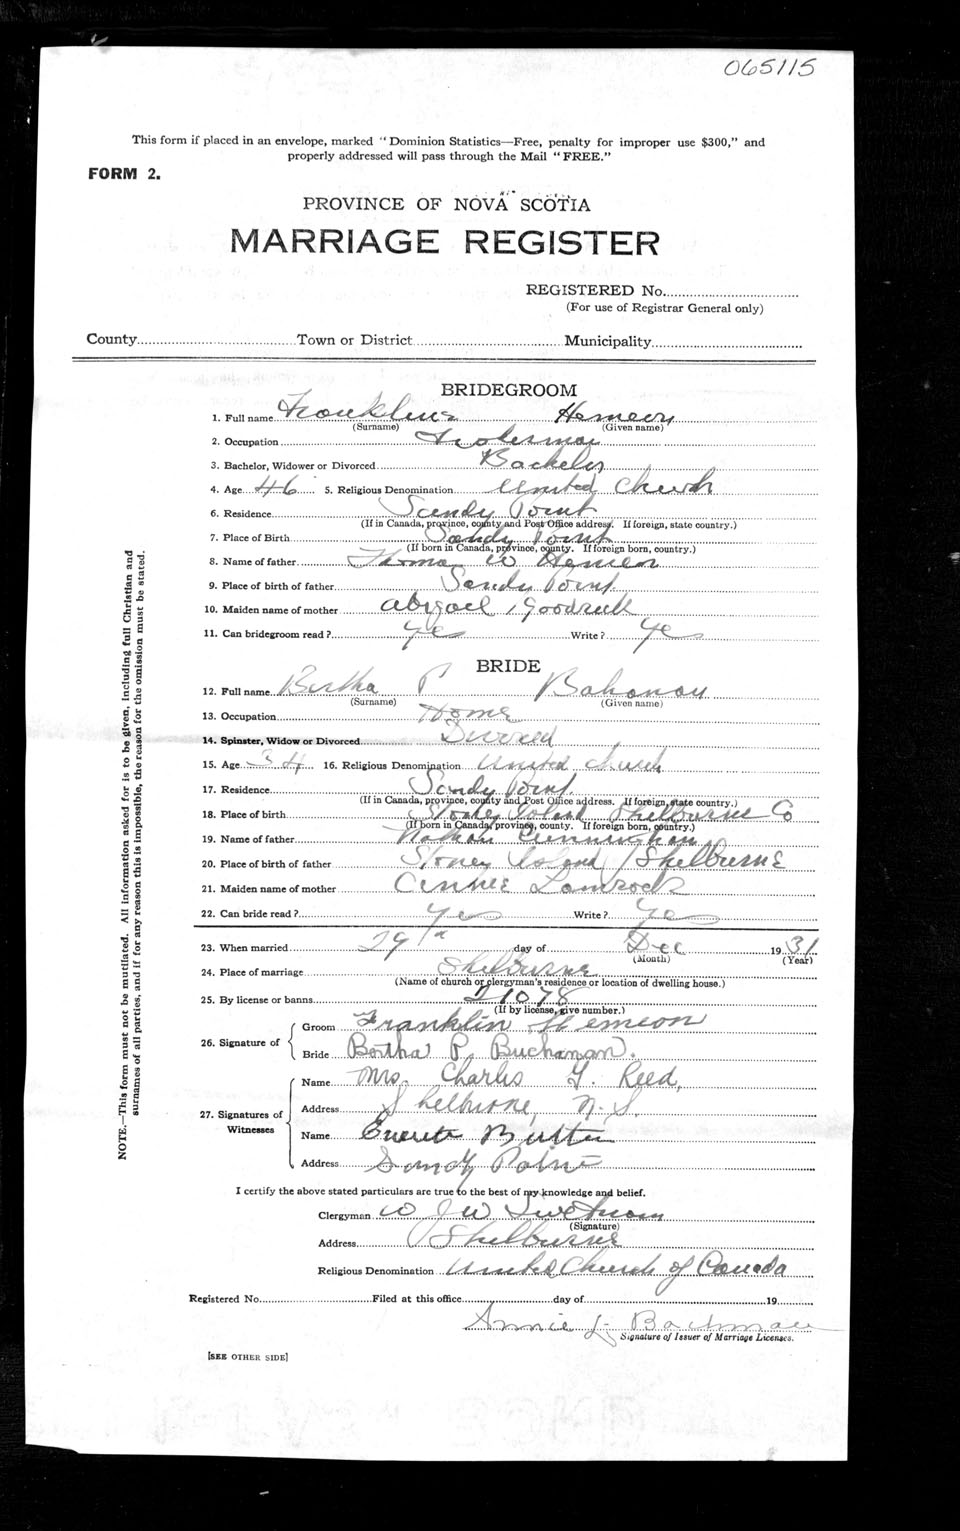 065115
This form if placed in an envelope, marked "Dominion Statistics—Free, penalty for improper use $300," and
properly addressed will pass through the Mail "FREE."
FORM 2.
PROVINCE OF NOVA SCOTIA
MARRIAGE REGISTER
REGISTERED No.
(For use of Registrar General only)
County Town or District Municipality
BRIDEGROOM
1. Full name Franklin Hemeon
(Surname) (Given name)
2. Occupation Fisherman
3. Bachelor, Widower or Divorced Bachelor
4. Age 46 5. Religious Denomination United Church
6. Residence Sandy Point
(If in Canada, province, county and Post Office address. If foreign, state country.)
7. Place of Birth Sandy Point
(If born in Canada, province, county. If foreign born, country.)
8. Name of father Thomas W Hemeon
9. Place of birth of father Sandy Point
10. Maiden name of mother Abigael Goodick
11. Can bridegroom read? Yes Write? Yes
BRIDE
12. Full name Bertha P
(Surname) (Given name)
13. Occupation Home
14. Spinster, Widow or Divorced Divorced
15. Age 34 16. Religious Denomination United Church
17. Residence Sandy Point
(If in Canada, province, county and Post Office address. If foreign, state country.)
18. Place of birth Stoney Island Shelburne Co
(If born in Canada, province, county. If foreign born, country.)
19. Name of father Nathan Cunningham
20. Place of birth of father Stoney Island Shelburne
21. Maiden name of mother
22. Can bride read? Yes Write? Yes
23. When married 29th day of Dec 1931
(Month) (Year)
24. Place of marriage Shelburne
(Name of church or clergyman's residence or location of dwelling house.)
25. By license or banns 21078
(If by license, give number.)
26. Signature of
Groom Franklin Hemeon
Bride Bertha P. Buchanan.
27. Signatures of Witnesses
Name Mrs. Charles G. Reed,
Address Shelburne, N.S.
Name Everett
Address Sandy Point
I certify the above stated particulars are true to the best of my knowledge and belief.
Clergyman W J W Swetnam
(Signature)
Address Shelburne
Religious Denomination United Church of Canada
Registered No. Filed at this office day of 19
Annie L.
Signature of Issuer of Marriage Licenses.
[SEE OTHER SIDE]
NOTE.—This form must not be mutilated. All information asked for is to be given, including full Christian and
surnames of all parties, and if for any reason this is impossible, the reason for the omission must be stated.